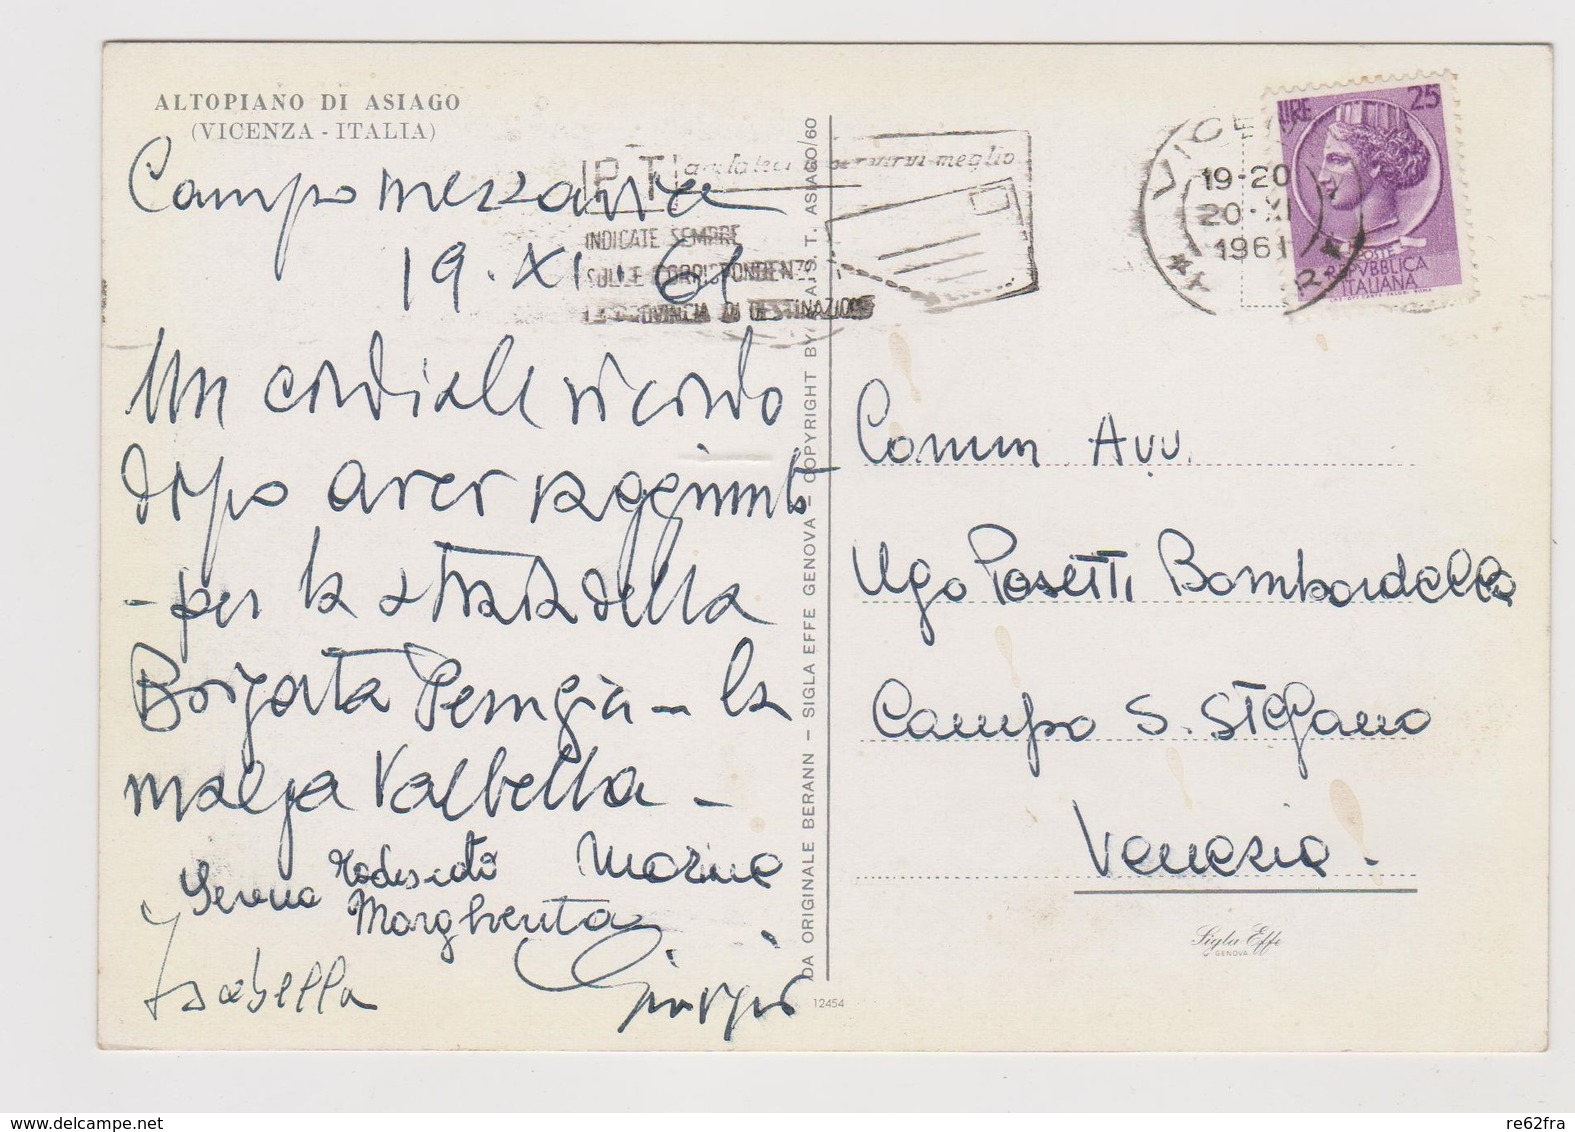 ALTOPIANO DI ASIAGO
(VICENZA - ITALIA)
Campomezzavia
19.XI.61
Un cordiale ricordo
dopo aver raggiunto
- per la strada della
Brigata Perugia - la
malga Valbella -
Serena Todescato Marina
Margherita
Isabella Giorgio
P.T.
INDICATE SEMPRE
SULLE CORRISPONDENZE
LA PROVINCIA DI DESTINAZIONE
servirvi meglio
VICENZA
19-20
20·XI
1961
LIRE 25
POSTE
REPVBBLICA
ITALIANA
DA ORIGINALE BERANN - SIGLA EFFE GENOVA - COPYRIGHT BY A.S.T. ASIAGO/60
Comm. Avv.
Ugo Posetti Bombardella
Campo S. Stefano
Venezia.
Sigla Effe
GENOVA
12454
re62fra